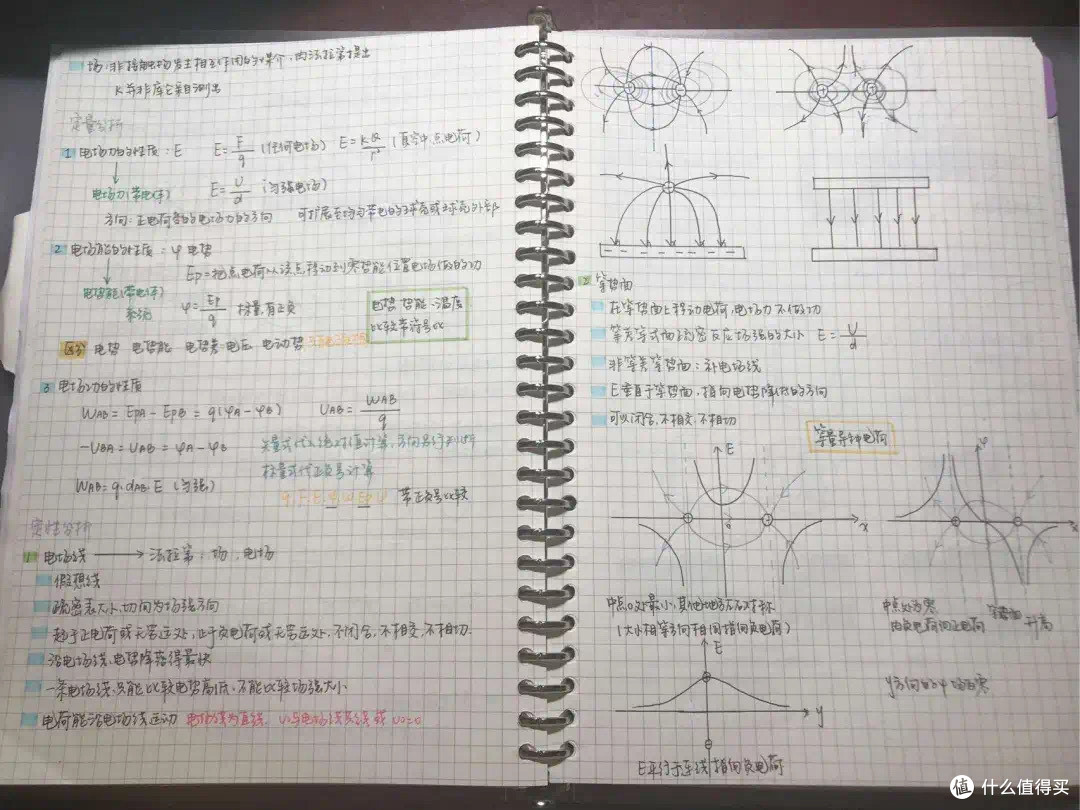 场:非接触场发生相互作用的媒介,由法拉第提出
K并非库仑亲自测出
定量分析
1 电场力的性质:E E=F/q (任何电场) E=kQ/r² (真空中,点电荷)
电场力(带电体) E=U/d (匀强电场)
方向:正电荷受的电场力的方向 可扩展至均匀带电的球体或球壳外部
2 电场能的性质:φ 电势
Ep=把点电荷从该点移动到零势能位置电场做的功
电势能(带电体系统) φ=Ep/q 标量,有正负
电势 势能 温度
比较带符号比
区分 电势 电势能 电势差 电压 电动势
3 电场功的性质
WAB=EpA-EpB=q(φA-φB) UAB=WAB/q
-UBA=UAB=φA-φB 矢量式代入绝对值计算,方向另行判断
标量式代正负号计算
WAB=q·dAB·E (匀强)
带正负号比较
定性分析
1 电场线 → 法拉第:场、电场
假想线
疏密表大小,切向为场强方向
起于正电荷或无穷远处,止于负电荷或无穷远处,不闭合,不相交,不相切.
沿电场线,电势降落得最快
一条电场线,只能比较电势高低,不能比较场强大小
电荷能沿电场线运动 电场线为直线 V₀与电场线共线或V₀=0
2 等势面
在等势面上移动电荷,电场力不做功
等差等式面疏密反应场强的大小 E=U/d
非等差等势面:补电场线
E垂直于等势面,指向电势降低的方向
可以闭合,不相交,不相切
等量异种电荷
E
φ
x
x
中点O处最小,其他地方对称
(大小相等方向相同指向负电荷)
中点处为零
由负电荷向正电荷 升高
E
y
y方向的φ均为零
E平行于连线指向负电荷
值 什么值得买